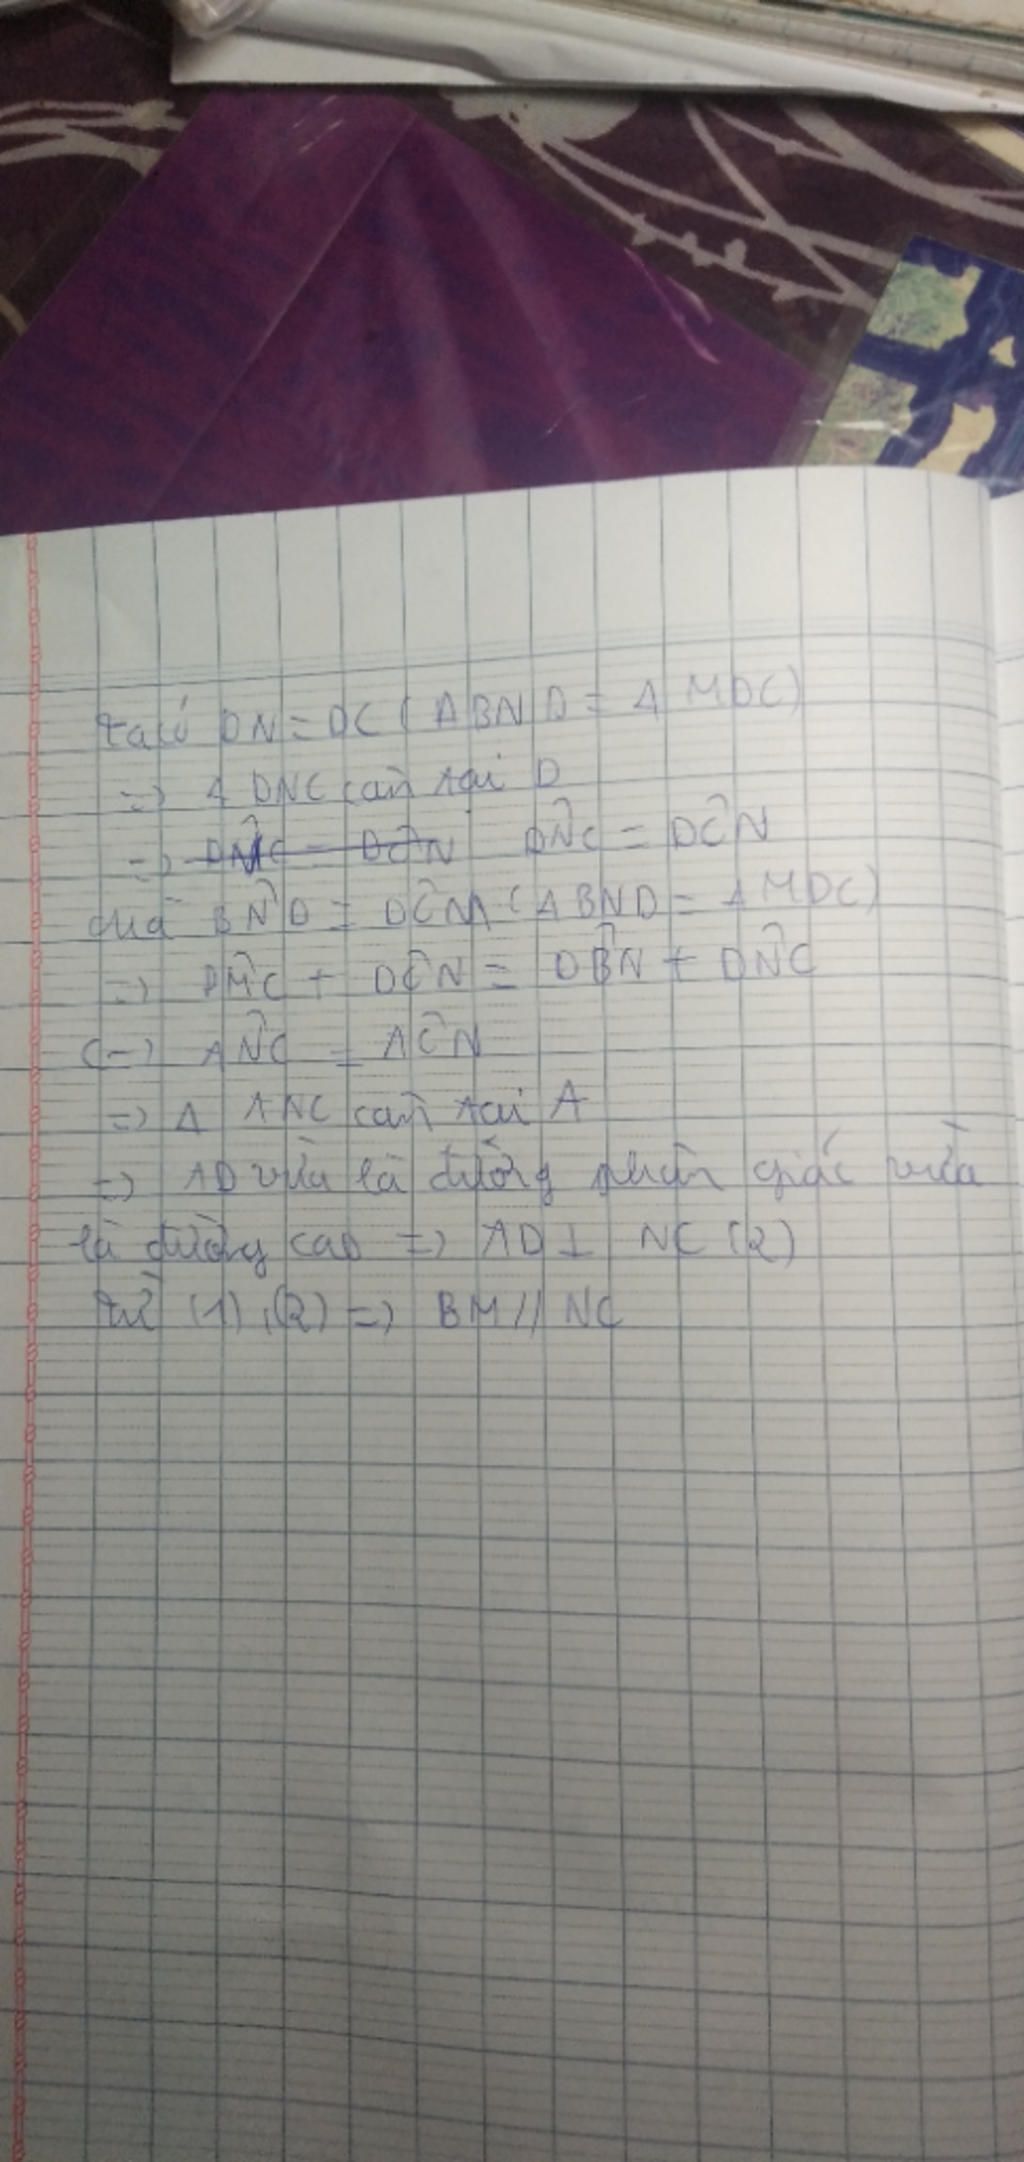 ta có DN = DC ( ΔBND = Δ MDC)
=> Δ DNC cân tại D
=> DN̂C = DĈN
mà BN̂D = DĈM ( ΔBND = ΔMDC)
=> DM̂C + DĈN = DB̂N + DN̂C
(=) AN̂C = AĈN
=> Δ ANC cân tại A
=> AD vừa là đường phân giác vừa
là đường cao => AD ⊥ NC (2)
từ (1), (2) => BM // NC